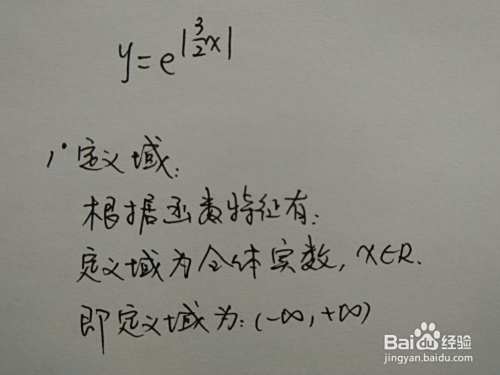 y=e^|3/2 x|
1° 定义域:
根据函数特征有:
定义域为全体实数, x∈R.
即定义域为: (-∞, +∞)
Baidu 经验
jingyan.baidu.com